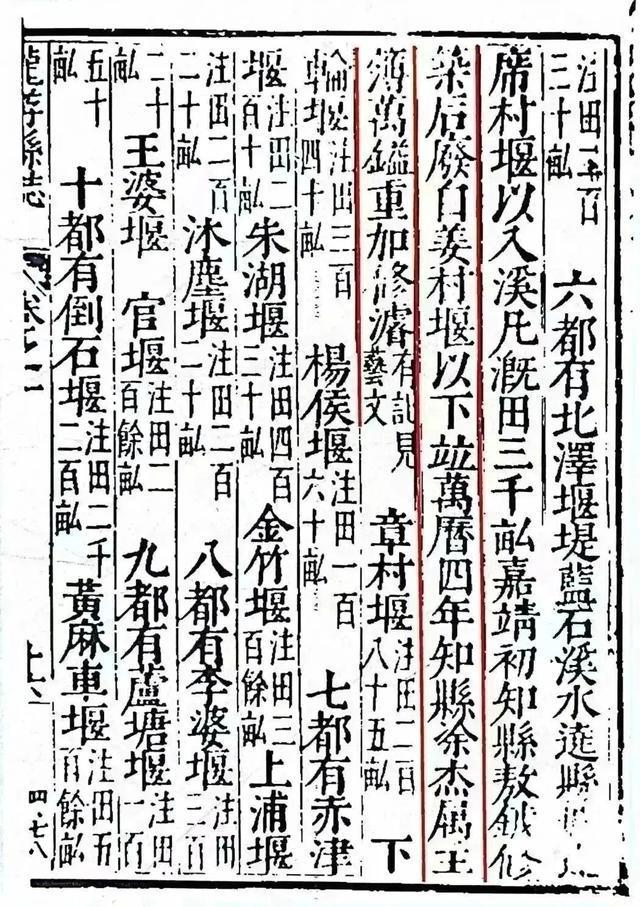 三十畝 六都有北澤堰堤藍石溪水達縣
席村堰以入溪凡溉田三千畝嘉靖初知縣敖鉞修
築后廢自姜村堰以下竝萬曆四年知縣徐杰屬主
簿萬鎰重加修濬有記見藝文 章村堰注田二百八十五畝 下
輪堰注田三百四十畝 楊侯堰注田一百六十畝 七都有赤津
堰注田二百十畝 朱湖堰注田四百三十畝 金竹堰注田三百餘畝 上浦堰
注田二百二十畝 沐塵堰注田二百二十畝 八都有李婆堰注田三百
二十畝 王婆堰 官堰注田二百餘畝 九都有蘆塘堰注田一百
五十畝 十都有倒石堰注田二千二百畝 黃麻車堰注田五百餘畝
龍游縣志 卷之二 十六 四·七八